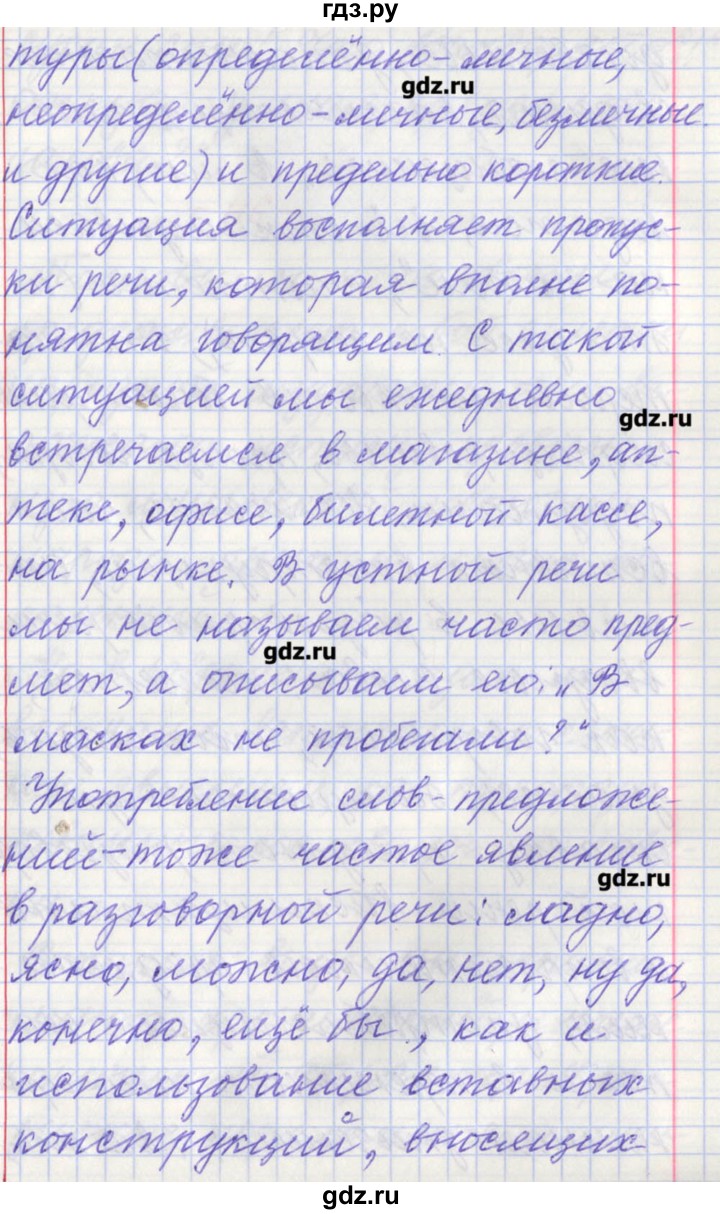 гдз.ру
туры (определённо-личные,
gdz.ru
неопределённо-личные, безличные
и другие) и предельно короткие.
Ситуация восполняет пропус-
ки речи, которая вполне по-
нятна говорящим. С такой
ситуацией мы ежедневно
gdz.ru
встречаемся в магазине, ап-
теке, офисе, билетной кассе,
на рынке. В устной речи
мы не называем часто пред-
gdz.ru
мет, а описываем его: „В
масках не пробегали?“
Употребление слов-предложе-
ний-тоже частое явление
gdz.ru
в разговорной речи: ладно,
ясно, можно, да, нет, ну да,
конечно, ещё бы, как и
использование вставных
конструкций, вносящих-
gdz.ru